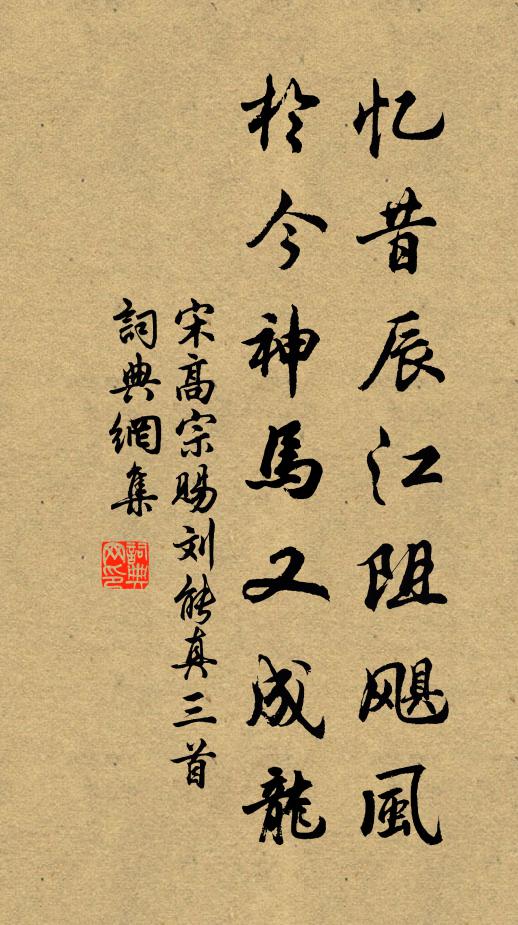 忆昔辰江阻飓風
於今神馬又成龍
宋高宗赐刘能真三首
詞典網集
詞典网印